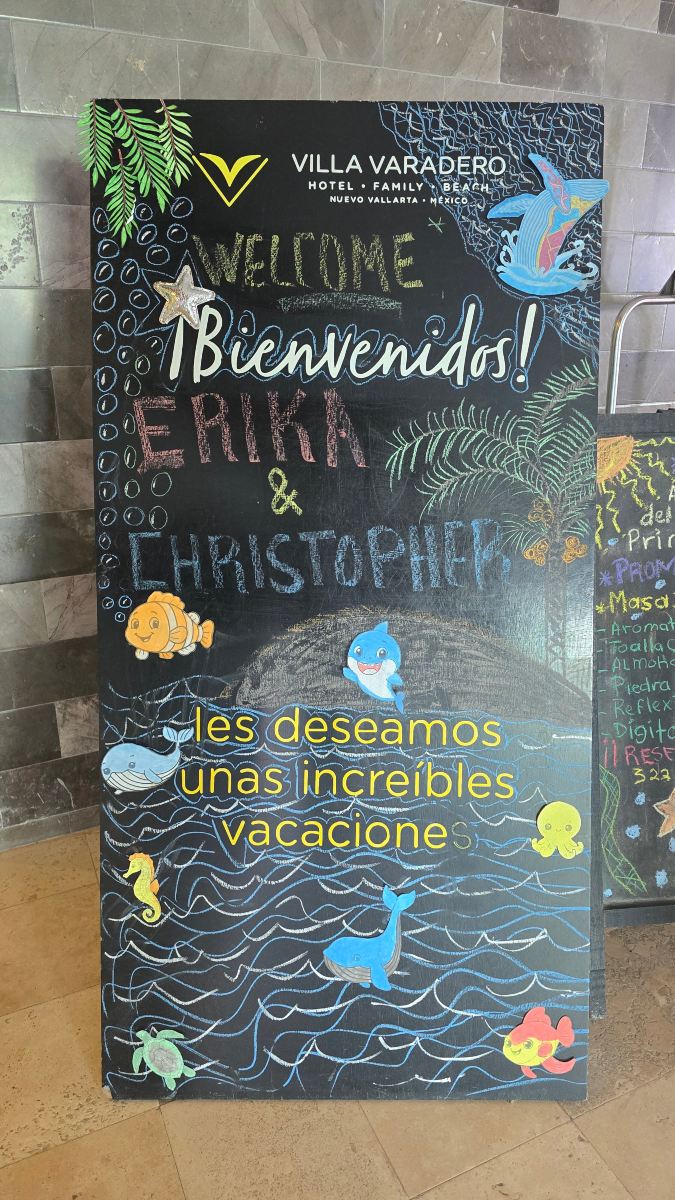 VILLA VARADERO
HOTEL • FAMILY • BEACH
NUEVO VALLARTA • MÉXICO
WELCOME
¡Bienvenidos!
ERIKA
&
CHRISTOPHER
les deseamos
unas increíbles
vacaciones
del
*Masa
-Aromat
-Toalla
-Piedra
-Reflex
-Digito
322